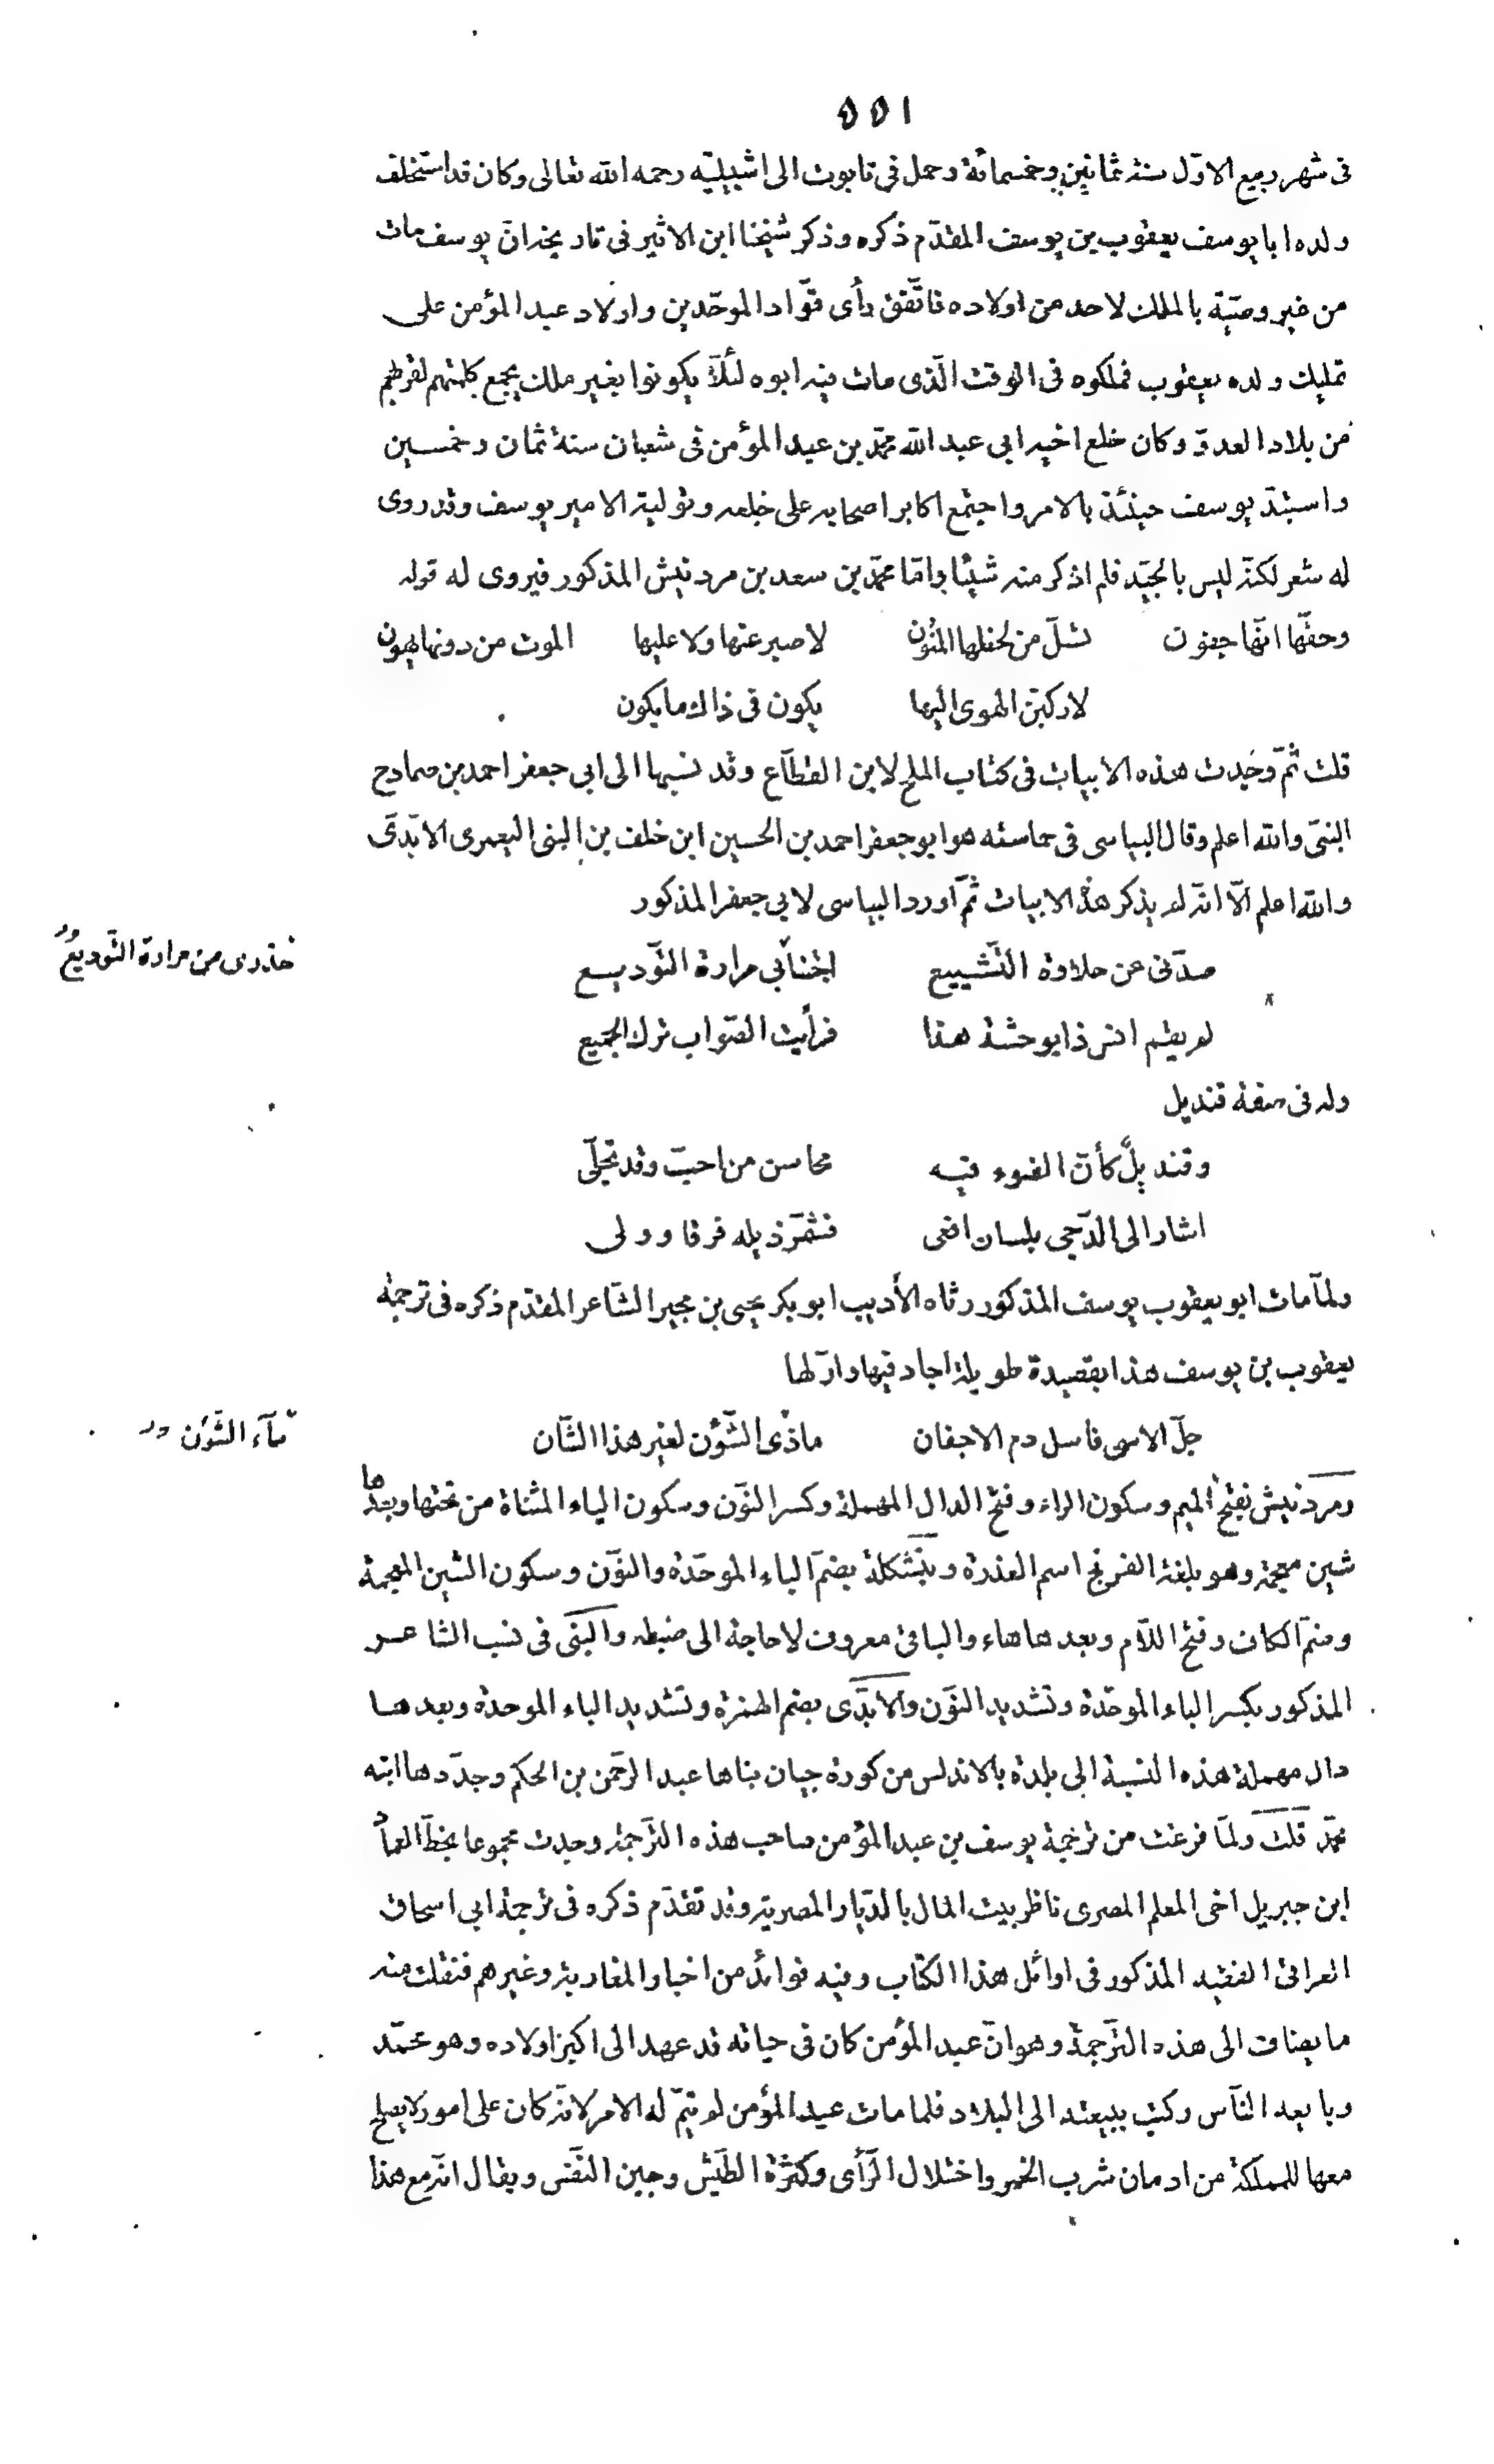 ٥٥١
فى شهر ربيع الاوّل سنة ثمانين وخمسمائة وحمل فى تابوت الى اشبيليّه رحمه الله تعالى وكان قد استخلف
ولده ابا يوسف يعقوب بن يوسف المقدّم ذكره وذكر شيخنا ابن الاثير فى تاريخه انّ يوسف مات
من غير وصيّة بالملك لاحد من اولاده فاتّفق رأى قوّاد الموحّدين واولاد عبد المؤمن على
تمليك ولده يعقوب فملكوه فى الوقت الّذى مات فيه ابوه لئلّا يكونوا بغير ملك يجمع كلمتهم لقربهم
من بلاد العدوّ وكان خلع اخيه ابى عبد الله محمّد بن عبد المؤمن فى شعبان سنة ثمان وخمسين
واستبدّ يوسف حينئذ بالامر واجتمع اكابر اصحابه على خلعه وتولية الامير يوسف وقد روى
له شعر لكنّه ليس بالجيّد فلم اذكر منه شيئا وامّا محمّد بن سعد بن مردنيش المذكور فيروى له قوله
وحقّها انّها جفون تسلّ من لحظها المنون لا صبر عنها ولا عليها الموت من دونها يهون
لاركبنّ الهوى اليها يكون فى ذاك ما يكون
قلت ثمّ وجدت هذه الابيات فى كتاب الملح لابن القطّاع وقد نسبها الى ابى جعفر احمد بن صمادح
البنىّ والله اعلم وقال البياسى فى حماسته هو ابو جعفر احمد بن الحسين ابن خلف بن البنى اليعمرى الابّدىّ
والله اعلم الّا انّه لم يذكر هذه الابيات ثمّ اورد البياسى لابى جعفر المذكور
صدّنى عن حلاوة التّشييع اجتنابى مرارة التّوديـع
حذرى من مرارة التّوديع
لم يقم انس ذا بوحشة هذا فرأيت الصّواب ترك الجميع
وله فى صفة قنديل
وقنديل كأنّ الضوء فيه محاسن من احبّ وقد تجلّى
اشار الى الدّجى بلسان افعى فشمّر ذيله فرقا وولى
ولمّا مات ابو يعقوب يوسف المذكور رثاه الأديب ابو بكر يحيى بن مجبر الشّاعر المقدّم ذكره فى ترجمة
يعقوب بن يوسف هذا بقصيدة طويلة اجاد فيها واوّلها
جلّ الاسى فاسل دم الاجفان ماذى الشّؤن لغير هذا الشّان
مآء الشّؤن
ومردنيش بفتح الميم وسكون الراء وفتح الدال المهملة وكسر النّون وسكون الياء المثناة من تحتها وبعدها
شين معجمة وهو بلغة الفرنج اسم العذرة وبنّشكلة بضمّ الباء الموحّدة والنّون وسكون الشين المعجمة
وضمّ الكاف وفتح اللّام وبعدها هاء والباقى معروف لا حاجة الى ضبطه والبنّى فى نسب الشاعر
المذكور بكسر الباء الموحّدة وتشديد النّون والابّدى بضم الهمزة وتشديد الباء الموحدة وبعدها
دال مهملة هذه النسبة الى بلدة بالاندلس من كورة جيان بناها عبد الرّحمن بن الحكم وجدّدها ابنه
محمّد قلت ولمّا فرغت من ترجمة يوسف بن عبد المؤمن صاحب هذه التّرجمة وجدت مجموعا بخطّ العماد
ابن جبريل اخى المعلم المصرى ناظر بيت المال بالدّيار المصرية وقد تقدّم ذكره فى ترجمة ابى اسحاق
العراقى الفقيه المذكور فى اوائل هذا الكتاب وفيه فوائد من اخبار المغاربة وغيرهم فنقلت منه
ما يضاف الى هذه التّرجمة وهو انّ عبد المؤمن كان فى حياته قد عهد الى اكبر اولاده وهو محمّد
وبايعه النّاس وكتب ببيعته الى البلاد فلما مات عبد المؤمن لم يتمّ له الامر لانّه كان على امور لا يصلح
معها للمملكة من ادمان شرب الخمر واختلال الرّأى وكثرة الطّيش وجبن النّفس ويقال انّه مع هذا